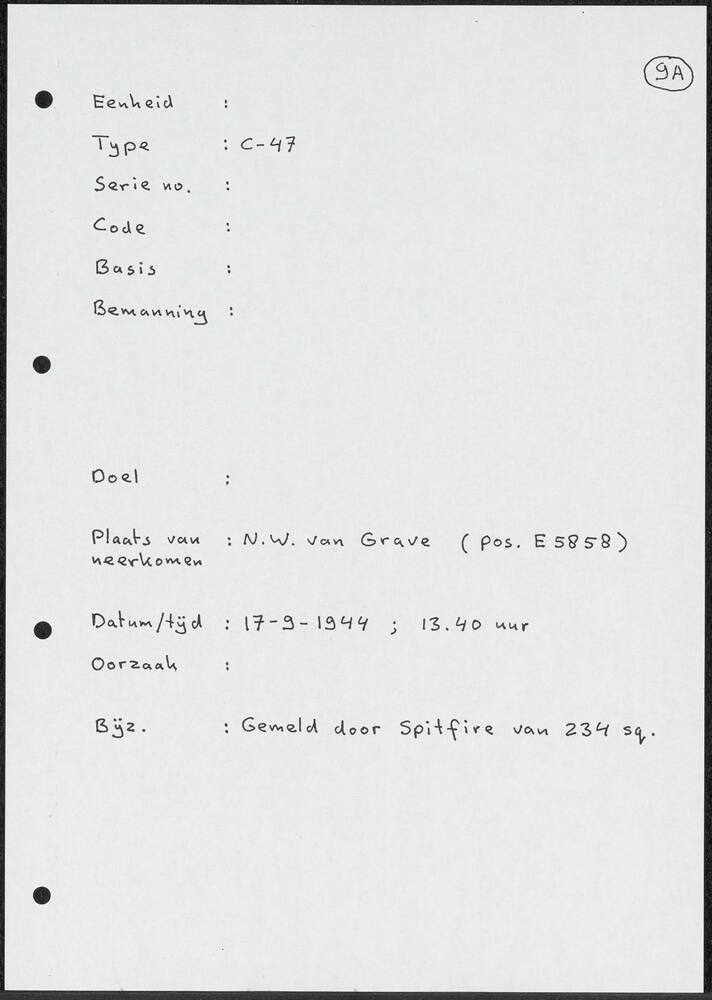 9A
Eenheid :
Type : C-47
Serie no. :
Code :
Basis :
Bemanning :
Doel :
Plaats van : N.W. van Grave (pos. E 5858)
neerkomen
Datum/tijd : 17-9-1944 ; 13.40 uur
Oorzaak :
Bijz. : Gemeld door Spitfire van 234 sq.